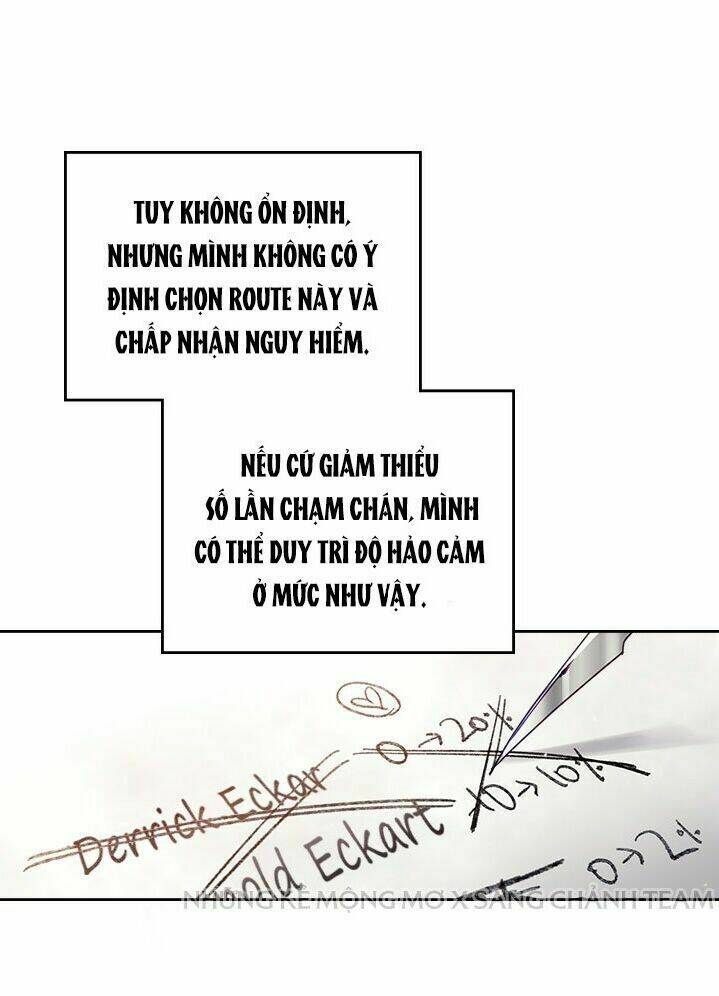 TUY KHÔNG ỔN ĐỊNH,
NHƯNG MÌNH KHÔNG CÓ Ý
ĐỊNH CHỌN ROUTE NÀY VÀ
CHẤP NHẬN NGUY HIỂM.
NẾU CỨ GIẢM THIỂU
SỐ LẦN CHẠM CHÁN, MÌNH
CÓ THỂ DUY TRÌ ĐỘ HẢO CẢM
Ở MỨC NHƯ VẬY.
0→20%
Derrick Eckar
→10%
old Eckart
0→2%
NHỮNG KẺ MỘNG MƠ X SANG CHẢNH TEAM